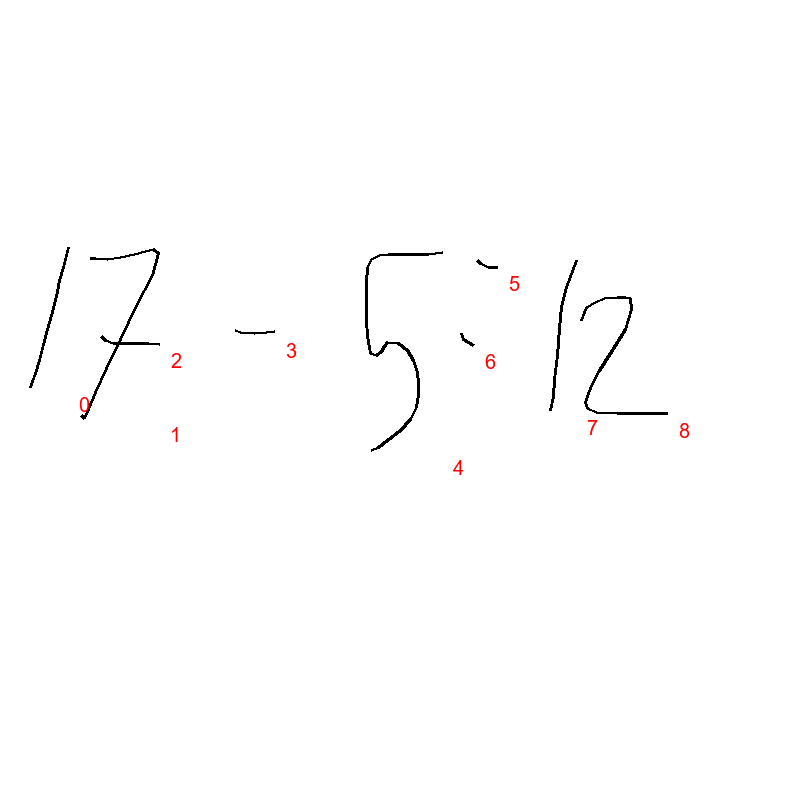 17 - 5 = 12
0 1 2 3 4 5 6 7 8